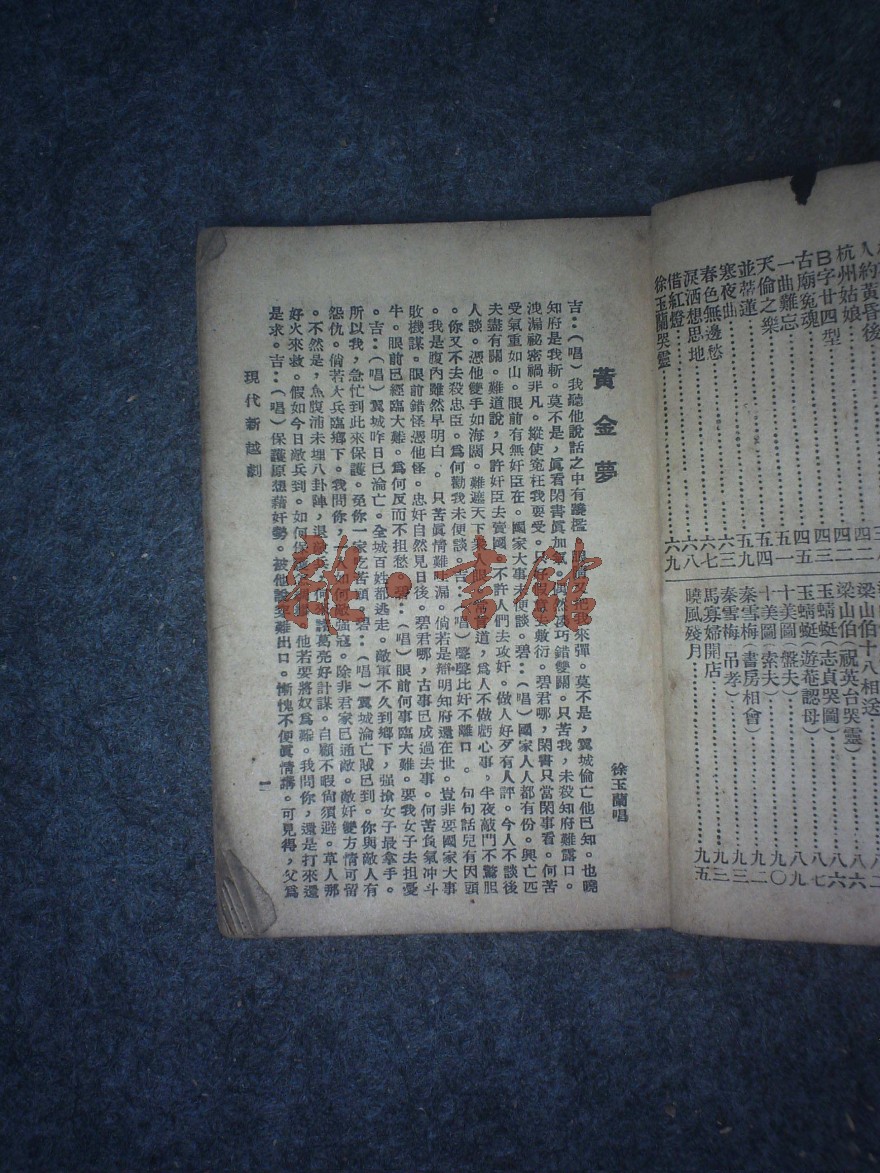 黃金夢
徐玉蘭唱
吉：（唱）我聽他說話之中有蹺
知府是我斬。莫不是，眞看閑書眞加氣。偶然技巧錯雙關。只苦我，未殺知府難露口。
洩漏祕密禍非凡。縱使寃枉我要受。只好假意
敷衍。碧君哪，閑書只當閑事看。何苦
受氣重如山。眼前有無奸臣在。國家大事未便談。碧：（唱）國家人人都有份。興亡匹
夫盡有關。難道說，只許奸臣去賣國。不許人們去攻奸。做人好歹有人評。今人不談後
人談。憑他雙手如海闊。難遮天下
道，爲人不做虧心事，半夜敲門不驚胆
。你又不去殺忠臣。爲何勸我未便談。吉：（唱）聲聲比奸不離口。句句話兒有因頭
。我是腹內雖然早明白。只苦眞情難
漏。倘若是辯明知府還在世。豈非要國家大事
敗機謀。眼前錯怪憑他怪。忠奸自然見日後。碧君哪，古事已成過去事。何苦負氣冲斗
牛。眼前已經臨大難。爲何反而不担愁。碧：（唱）眼前何事臨大難。要我女子去担憂
。吉：（唱）翼城昨日已淪亡。全城百姓都逃走。敵軍不久到鄉下，强搶女子最拿手。
所以我，急忙到此來保護。免你一家吃苦頭。碧：（唱）翼城淪亡賊已到。你與敵人有
怨仇。倘若大兵臨鄉下。我問你，
人如何敵强寇。除非君家已通敵。敵奸雙方情可留
。不然是，魚腹浦未埋八卦陣，退敵兵
何來諸葛亮好計謀。自顧不暇尙須避。草人那
好火來救。假如今日敵兵到。如何保護
他若要將奴爲難。我問你，還是打來還
是求。吉：（唱）保護原想藉奸勢。被他說
難出口。慚愧不便眞情講。可見得，父爲
現代新越劇
一
人約黃昏後
杭州姑娘
B字廿四型
古廟寃魂
一曲難忘
天倫之樂
並蒂蓮
寒夜曲
春色無邊愁
淚洒想思地
借紅燈
徐玉蘭哭靈
梁山伯十八相送
梁山伯（祝英台哭靈）
玉蜻蜓（志貞哭圖）
玉蜻蜓（遊菴認母）
十美圖（盤夫）
十美圖（索夫）
秦雪梅（書房相會）
秦雪梅（吊孝）
馬寡婦開店
曉風殘月
雜·書館